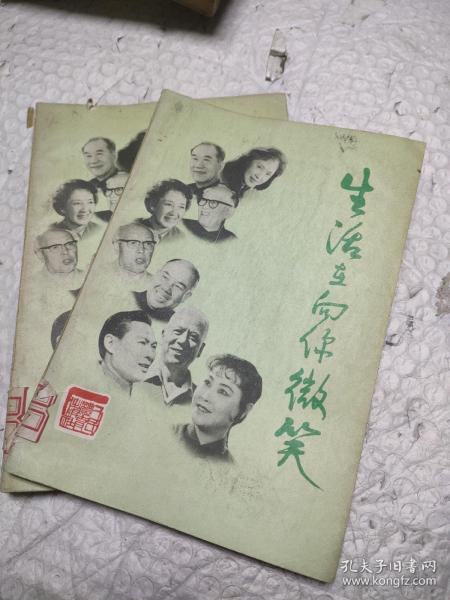 生活在向你微笑
孔夫子旧书网
www.kongfz.com